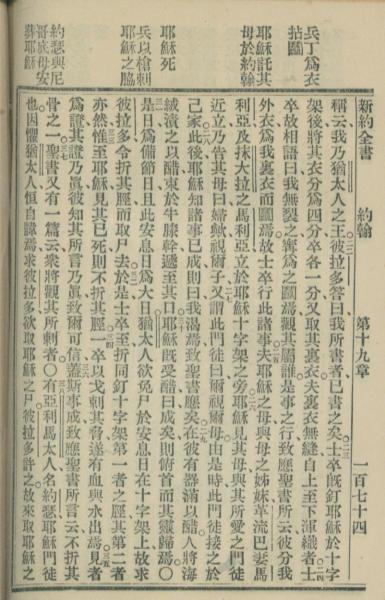 兵丁爲衣
拈鬮
耶穌託其
母於約翰
耶穌死
兵以槍刺
耶穌之脇
約瑟與尼
哥底母安
葬耶穌
新約全書 約翰 第十九章 一百七十四
稱云我乃猶太人之王彼拉多答曰我所書者已書之矣士卒既釘耶穌於十字
架後將其衣分爲四分卒各一分又取其裏衣夫裏衣無縫自上至下渾織者士
卒故相語曰我無裂之寕爲之鬮焉觀其屬誰是事之行致應聖書所云彼分我
外衣爲我裏衣而鬮焉故士卒行此諸事夫耶穌之母與母之姊妹革流巴妻馬
利亞及抹大拉之馬利亞立於耶穌十字架之旁耶穌見其母與其所愛之門徒
近立乃告其母曰婦歟視爾子又謂此門徒曰爾視爾母由是時此門徒接之於
己家此後耶穌知諸事已成則曰我渴焉致聖書應矣在彼有器滿以醋人將海
絨漬之以醋束於牛膝榦遞至其口耶穌既受醋曰成矣則俯首而其靈歸焉○
是日爲備節日且此安息日爲大日猶太人欲免尸於安息日在十字架上故求
彼拉多令折其脛而取尸去於是士卒至折同釘十字架第一者之脛其第二者
亦然惟至耶穌見其已死則不折其脛一卒以戈刺其脅遂有血與水出焉見者
爲證其證乃眞彼知其所言乃眞致爾可信蓋斯事成致應聖書所言云不折其
骨之一聖書又有一篇云衆將觀其所刺者○有亞利馬太人名約瑟耶穌門徒
也因懼猶太人恒自諱焉求彼拉多欲取耶穌之尸彼拉多許之故來取耶穌之